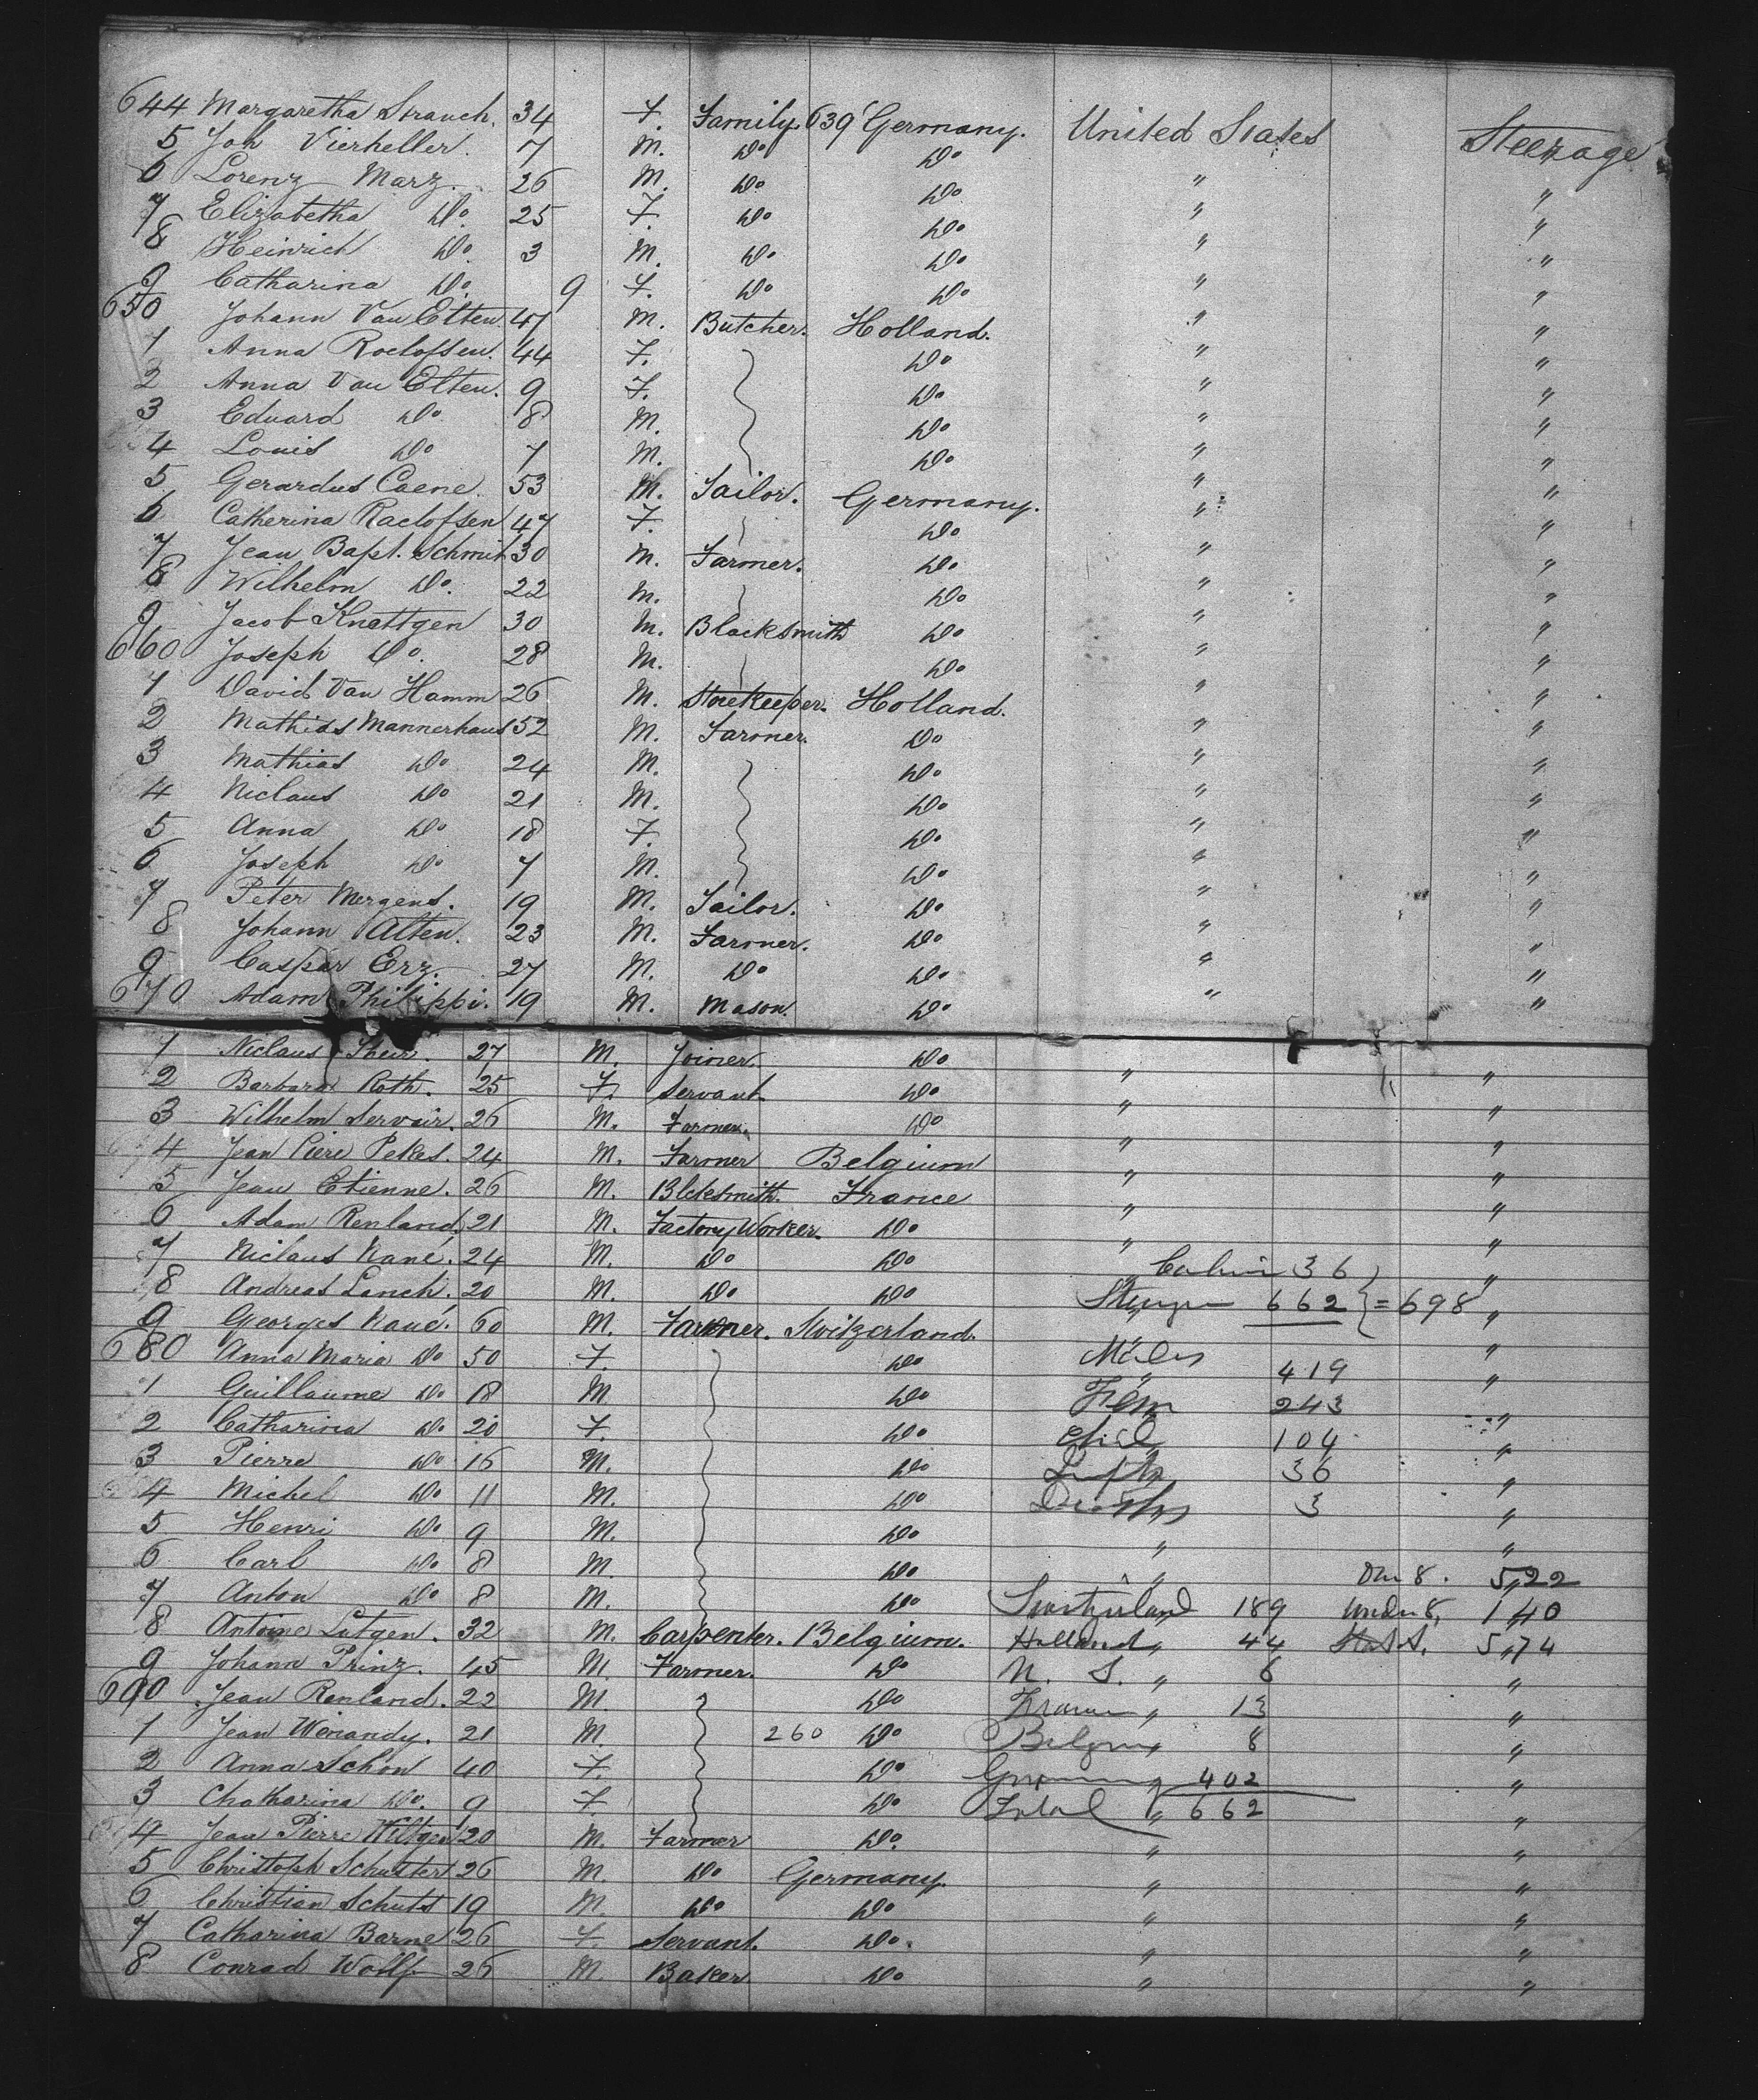 644 Margaretha Strauch. 34 F. Family. 639 Germany. United States Steerage
5 Joh Vierheller. 7 M. Do Do
6 Lorenz Marz. 26 M. Do Do " "
7 Elizabetha Do. 25 F. Do Do " "
8 Heinrich Do. 3 M. Do Do " "
9 Catharina Do. 9 F. Do Do " "
650 Johann Van Elten 47 M. Butcher. Holland. " "
1 Anna Roelofsen. 44 F. Do " "
2 Anna Van Elten. 9 F. Do " "
3 Eduard Do 8 M. Do " "
4 Louis Do 7 M. Do " "
5 Gerardus Caene. 53 M. Tailor. Germany. " "
6 Catherina Raelofsen 47 F. Do " "
7 Jean Bapt. Schmit 30 M. Farmer. Do " "
8 Wilhelm Do. 22 M. Do " "
9 Jacob Knettgen 30 M. Blacksmith Do " "
660 Joseph Do. 28 M. Do " "
1 David Van Hamm 26 M. Storekeeper. Holland. " "
2 Mathias Mannerhaus 52 M. Farmer. Do " "
3 Mathias Do 24 M. Do " "
4 Niclaus Do 21 M. Do " "
5 Anna Do 18 F. Do " "
6 Joseph Do 7 M. Do " "
7 Peter Mergens. 19 M. Tailor. Do " "
8 Johann Alten. 23 M. Farmer. Do " "
9 Caspar Erz. 27 M. Do Do " "
670 Adam Philippi. 19 M. Mason. Do " "
1 Niclaus Their. 27 M. Joiner. Do " "
2 Barbara Roth. 25 F. Servant. Do " "
3 Wilhelm Servair. 26 M. Farmer. Do " "
4 Jean Piere Pekes. 24 M. Farmer Belgium " "
5 Jean Etienne. 26 M. Blcksmith. France " "
6 Adam Renland. 21 M. Factory Worker. Do " "
7 Niclaus Nané. 24 M. Do Do Cabin 36 "
8 Andreas Lanch. 20 M. Do Do 662 = 698 "
9 Georges Naué. 60 M. Farmer. Switzerland. "
680 Anna Maria Do 50 F. Do Males 419 "
1 Guillaume Do 18 M. Do Fem 243 "
2 Catharina Do 20 F. Do Chil 104 "
3 Pierre Do 16 M. Do 36 "
4 Michel Do 11 M. Do Deaths 3 "
5 Henri Do 9 M. Do " "
6 Carl Do 8 M. Do " 8. 522
7 Anton Do 8 M. Do Switzerland 189 Under 8, 140
8 Antoine Lutgen. 32 M. Carpenter. Belgium. Holland 44 574
9 Johann Prinz. 45 M. Farmer. Do U. S. " 6 "
690 Jean Renland. 22 M. Do France " 13 "
1 Jean Weirandy. 21 M. 260 Do Belgium 8 "
2 Anna Schon 40 F. Do 402 "
3 Chatharina Do. 9 F. Do Total " 662 "
4 Jean Pierre Wiltgen 20 M. Farmer Do. " "
5 Christoph Schuttert 26 M. Do Germany. " "
6 Christian Schutt 19 M. Do Do " "
7 Catharina Barne 26 F. Servant. Do. " "
8 Conrad Wolff 26 M. Baker Do " "